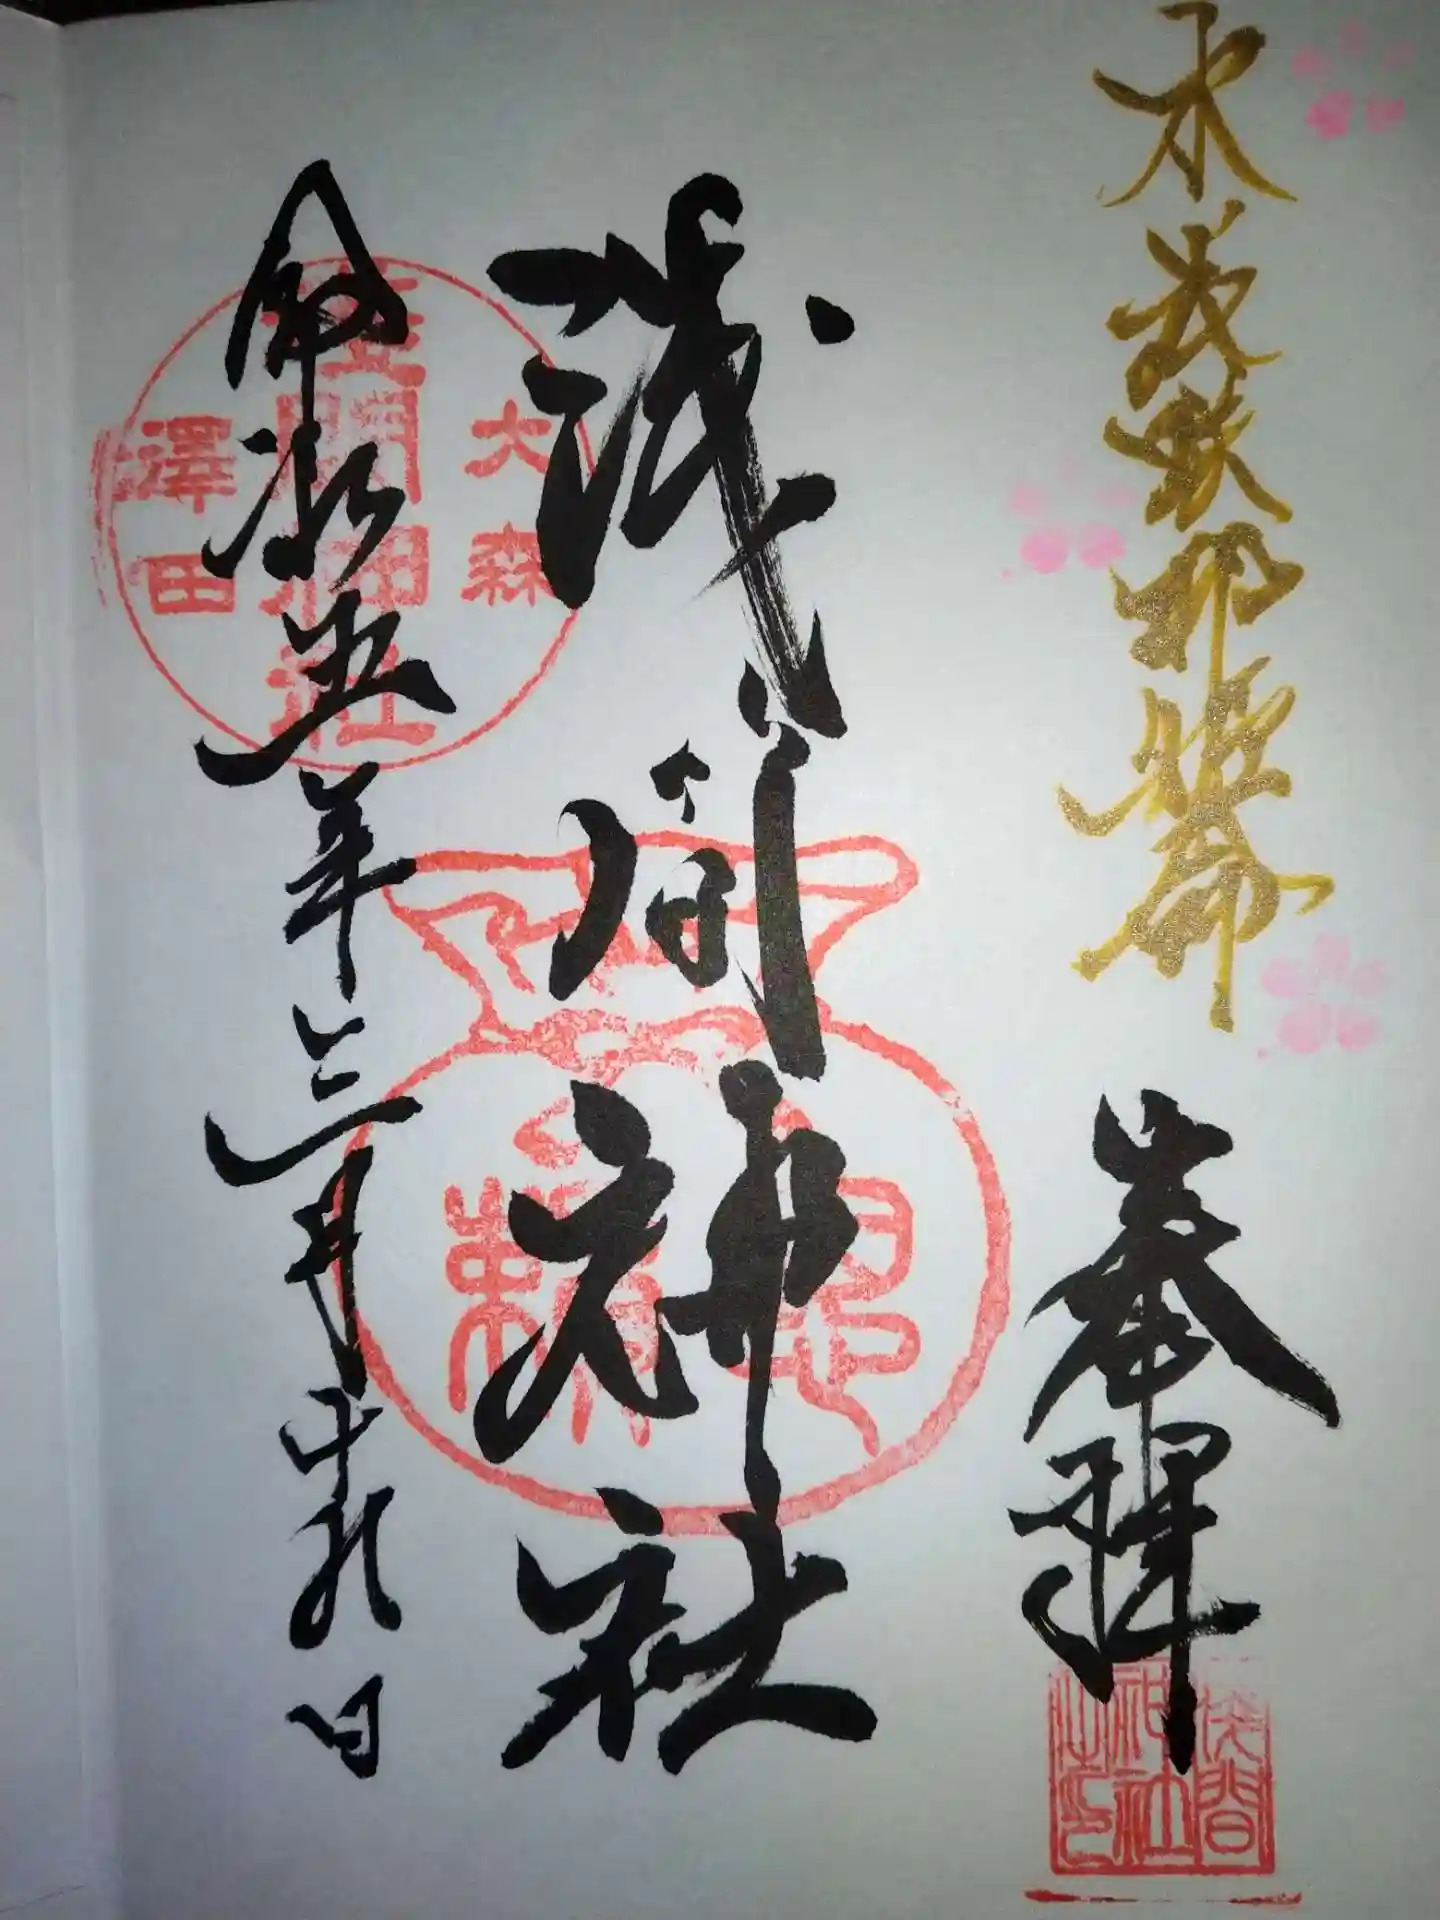 木花咲耶姫命
奉拝
浅間神社之印
浅間神社
恩頼
大森
浅間神社
澤田
令和五年三月十九日